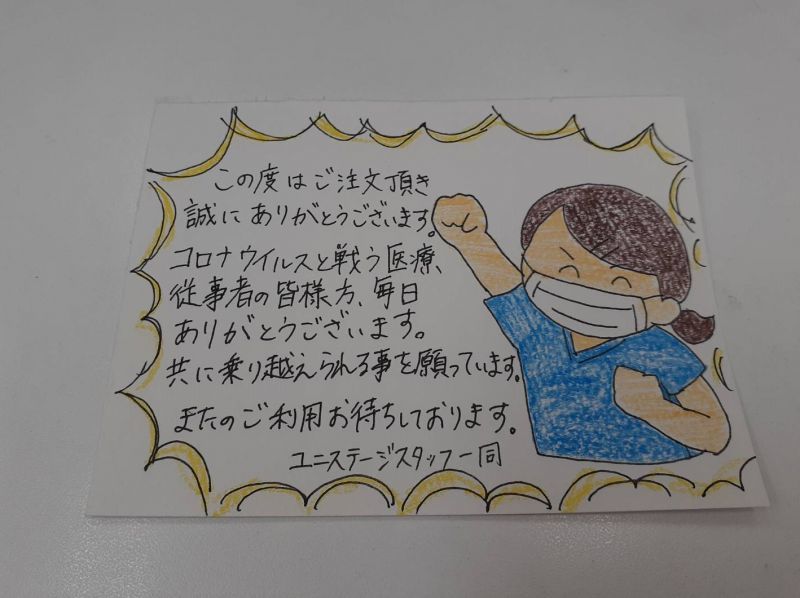 この度はご注文頂き
誠にありがとうございます。
コロナウイルスと戦う医療、
従事者の皆様方、毎日
ありがとうございます。
共に乗り越えられる事を願っています。
またのご利用お待ちしております。
ユニステージスタッフ一同